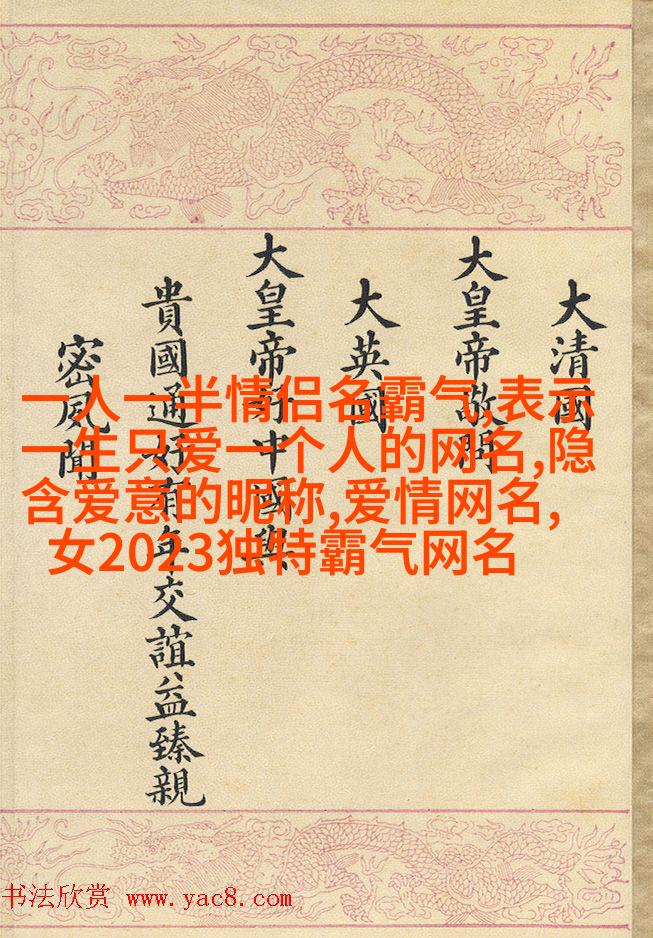 大清國
大皇帝敬問
大英國
大皇帝好中國與
貴國通好有年交誼益臻親
密夙聞
一人一半情侣名霸气,表示
一生只爱一个人的网名,隐
含爱意的昵称,爱情网名,
女2023独特霸气网名
书法欣赏 www.yac8.com